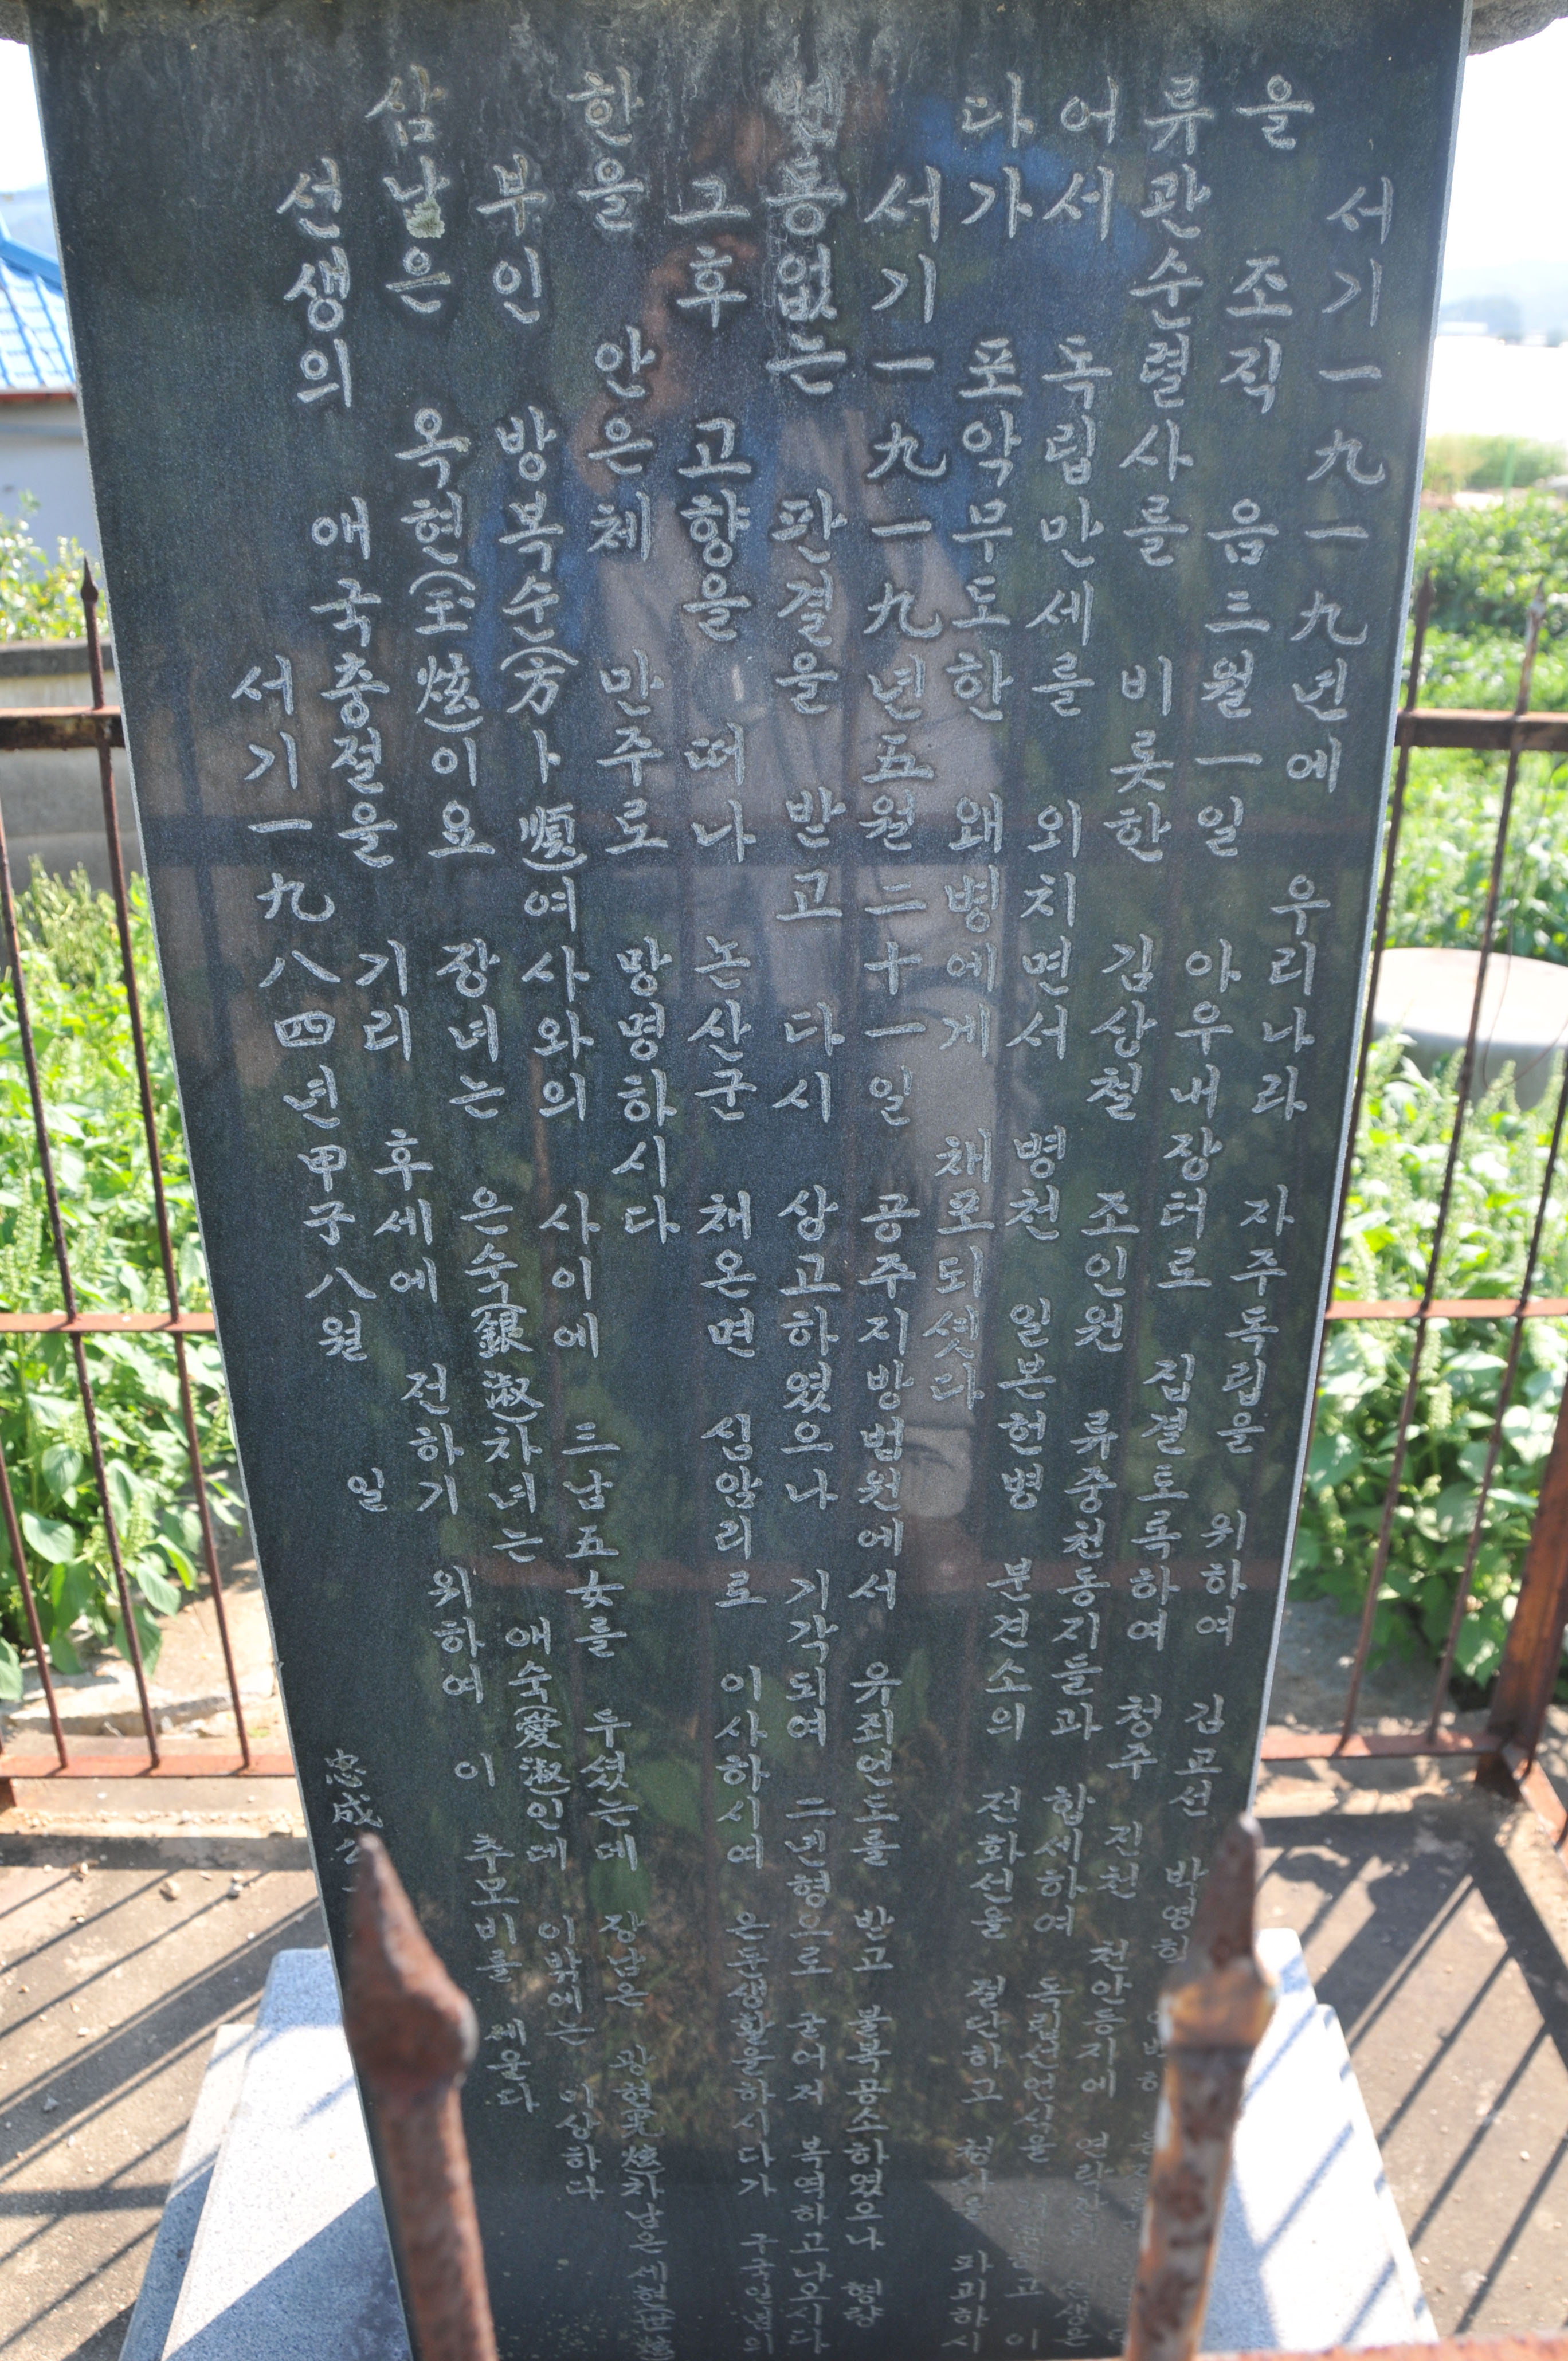 서기一九一九년에 우리나라 자주독립을 위하여 김교선 박영
을 조직 음三월一일 아우내장터로 집결토록하여 청주 진천 천안등지에 연락
류관순렬사를 비롯한 김상철 조인원 류중천동지들과 합세하여 독립선언서을
어서 독립만세를 외치면서 병천 일본헌병 분견소의 전화선을 절단하고 청사을 파괴하시
다가 포악무도한 왜병에게 채포되셧다
서기一九一九년五월二十一일 공주지방법원에서 유죄언도를 받고 불복공소하였으나 형량
변동없는 판결을 받고 다시 상고하였으나 기각되여 二년형으로 굳어저 복역하고나오시다
그후 고향을 떠나 논산군 채온면 심암리로 이사하시여 은둔생활을하시다가 구국일념의
한을 안은체 만주로 망명하시다
부인 방복수(方卜順)여사와의 사이에 三남五女를 두셨는데 장남은 광현(光炫)차남은세현(世炫)
삼남은 옥현(玉炫)이요 장녀는 은숙(銀淑)차녀는 애숙(愛淑)인데 이밖에는 이상하다
선생의 애국충절을 기리 후세에 전하기 위하여 이 추모비를 세운다
서기一九八四년甲子八월 일
忠成公